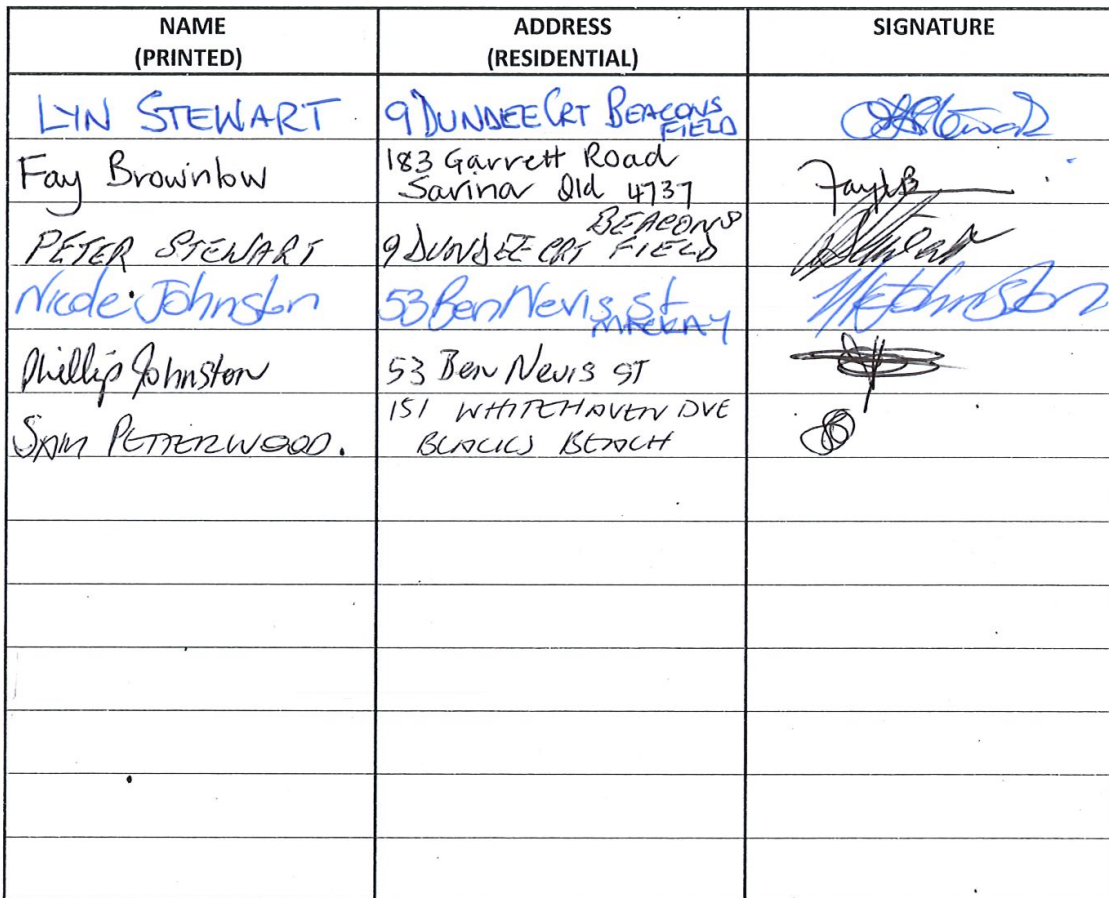 NAME
(PRINTED)
ADDRESS
(RESIDENTIAL)
SIGNATURE
LYN STEWART
9 DUNDEE CRT BEACONS
FIELD
Fay Brownlow
183 Garrett Road
Sarina Qld 4737
PETER STEWART
9 DUNDEE CRT BEACONS
FIELD
Nicole Johnston
53 Ben Nevis St
MACKAY
Phillip Johnston
53 Ben Nevis ST
SAM PETTERWOOD.
151 WHITEHAVEN DVE
BLACKS BEACH